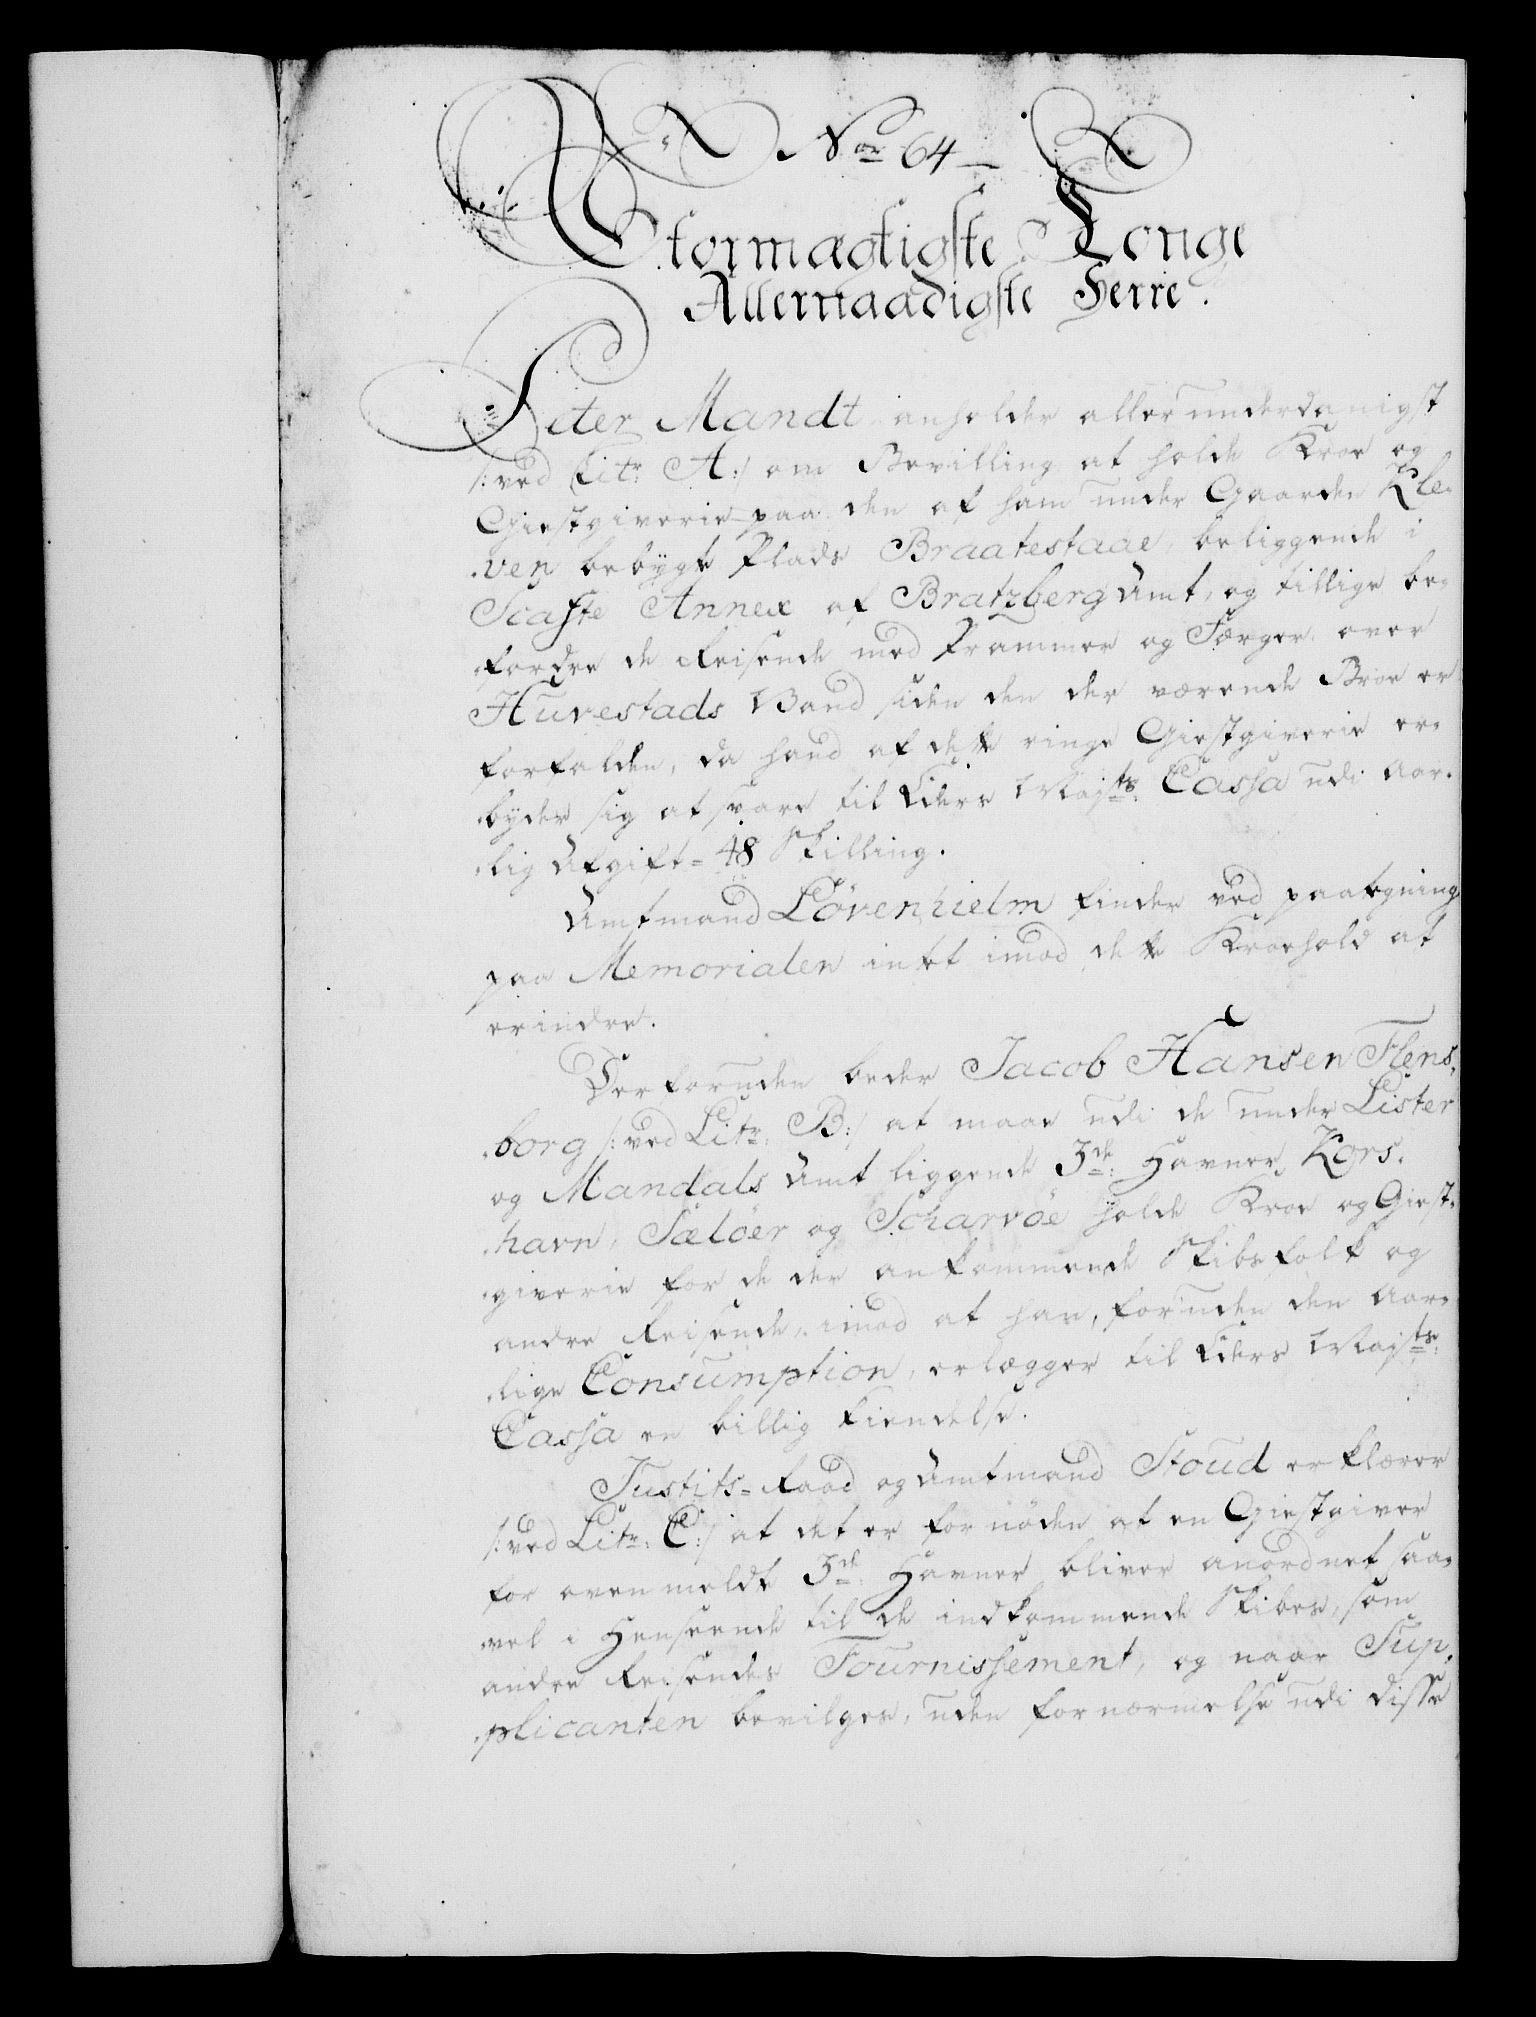 Nor 64
Stormægtigste Konge
Allernaadigste Herre.
Peter Mandt anholder allerunderdanigst
/:ved Litr. A:/ om Bevilling at holde Kroe og
Giestgiverie paa den af ham under Gaarden Kle-
ven bebygte Plads Braatestaae, beliggende i
Scafse Annex af Bratzberg Amt, og tillige be-
fordre de Reisende med Prammer og Færger over
Huvestads Vand siden den der værende Broe er
forfalden, da hand af dette ringe Giestgiverie er-
byder sig at svare til Eders Majts: Cassa udi Aar-
lig Afgift = 48 Skilling.
Amtmand Lövenhielm finder ved paategning
paa Memorialen intet imod dette Kroehold at
erindre.
Desforuden beder Jacob Hansen Flens-
borg /:ved Litr. B:/ at maae udi de under Lister
og Mandals Amt liggende 3de: Havner, Kors-
havn, Sælöer og Scharvöe holde Kroe og Giest-
giverie for de der ankommende Skibsfolk og
andre Reisende, imod at han, foruden den Aar-
lige Consumption, erlægger til Eders Majts:
Cassa en billig Kiendelse.
Justits-Raad og Amtmand Stoud erklærer
/:ved Litr: C:/ at det er fornöden at en Giestgiver
for ovenmeldte 3de Havner bliver anordnet saa-
vel i Henseende til de indkommende Skibes, som
andre Reisendes Fournissement, og naar Sup-
plicanten bevilges, uden fornærmelse udi disse